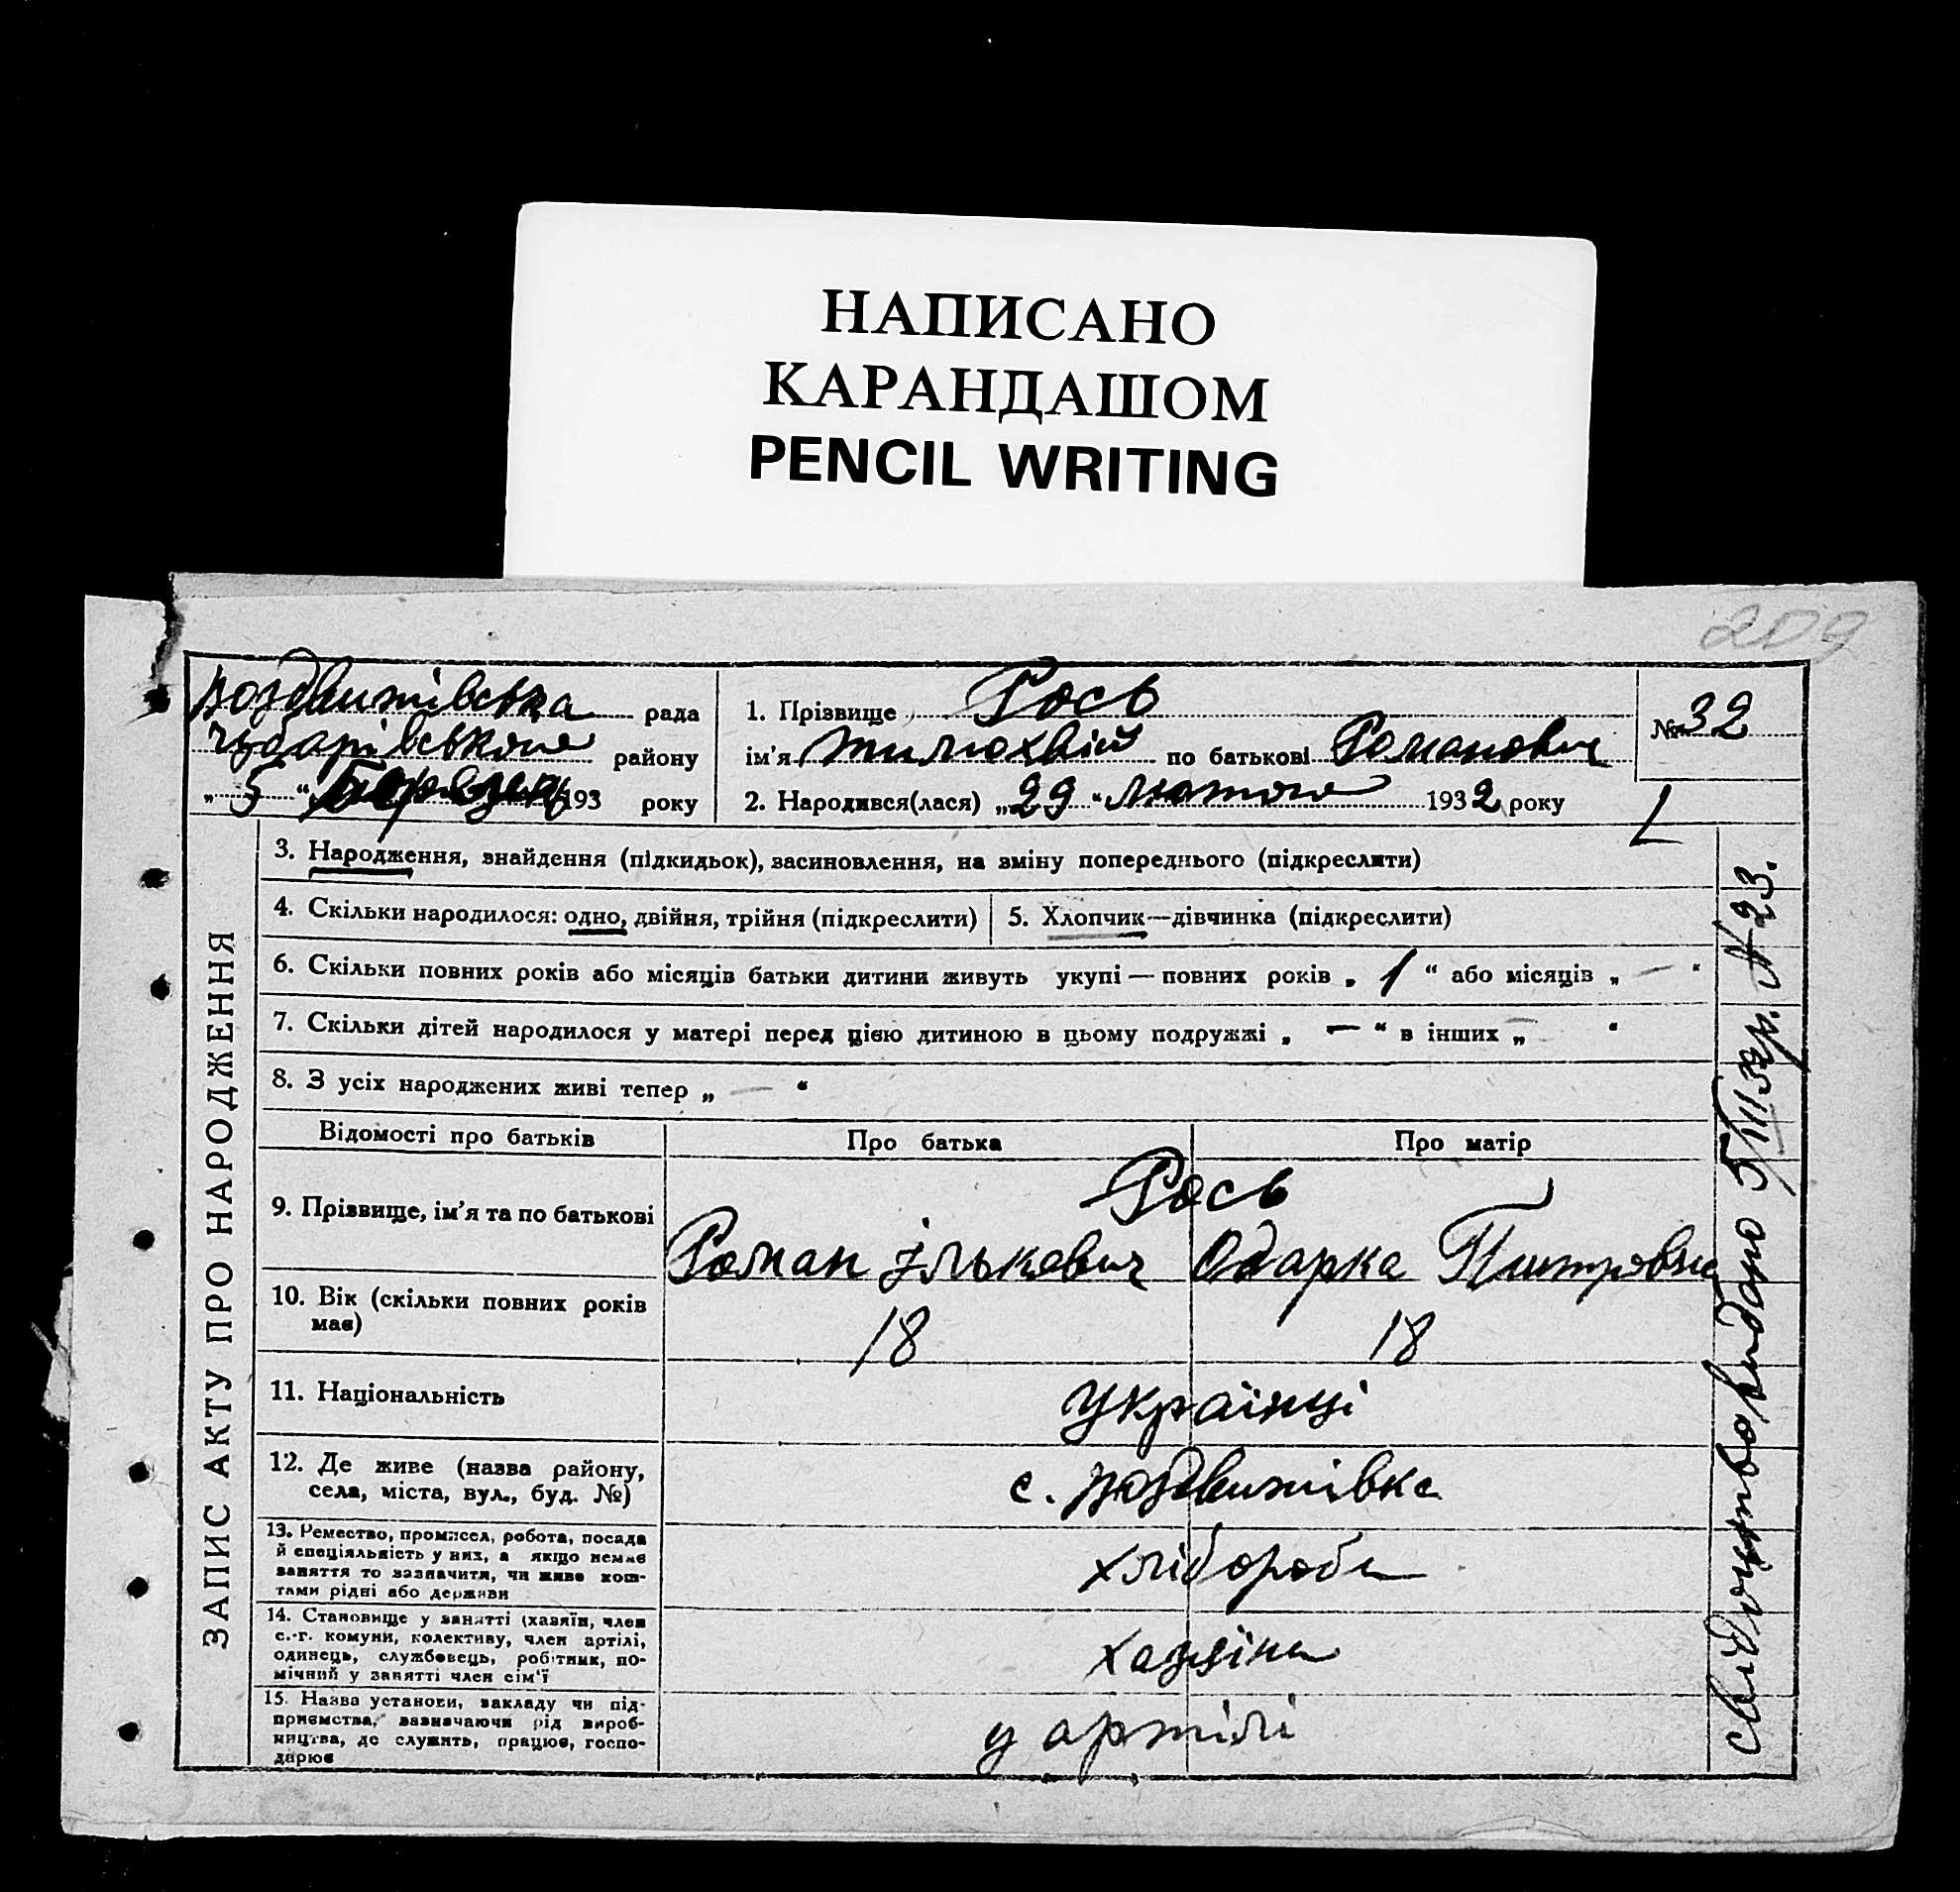 НАПИСАНО
КАРАНДАШОМ
PENCIL WRITING
209
Воздвижівська рада
Чубарівського району
„5“ Березня 193 року
1. Прізвище Рось
ім'я Тимохвій по батькові Романович
2. Народився(лася) „29“ Лютого 1932 року
№ 32
ЗАПИС АКТУ ПРО НАРОДЖЕННЯ
3. Народження, знайдення (підкидьок), засиновлення, на зміну попереднього (підкреслити)
4. Скільки народилося: одно, двійня, трійня (підкреслити)
5. Хлопчик—дівчинка (підкреслити)
6. Скільки повних років або місяців батьки дитини живуть укупі — повних років „ 1 “ або місяців „ — “
7. Скільки дітей народилося у матері перед цією дитиною в цьому подружжі „ — “ в інших „ — “
8. З усіх народжених живі тепер „ — “
Відомості про батьків
Про батька
Про матір
9. Прізвище, ім'я та по батькові
Рось
Роман Ількович
Одарка Питровна
10. Вік (скільки повних років
має)
18
18
11. Національність
Українці
12. Де живе (назва району,
села, міста, вул., буд. №)
с. Воздвижівка
13. Ремество, промисел, робота, посада
й спеціяльність у них, а якщо немає
заняття то зазначити, чи живе кош-
тами рідні або держави
хлібороби
14. Становище у занятті (хазяїн, член
с.-г. комуни, колективу, член артілі,
одинець, службовець, робітник, по-
мічний у занятті член сім'ї
хазяїни
15. Назва установи, закладу чи під-
приємства, зазначаючи рід вироб-
ництва, де служить, працює, госпо-
дарює
у артілі
Свідоцтво видано 5/III зар. № 23.